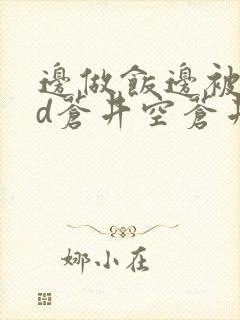 邊做飯邊被
d蒼井空蒼井
娜小在